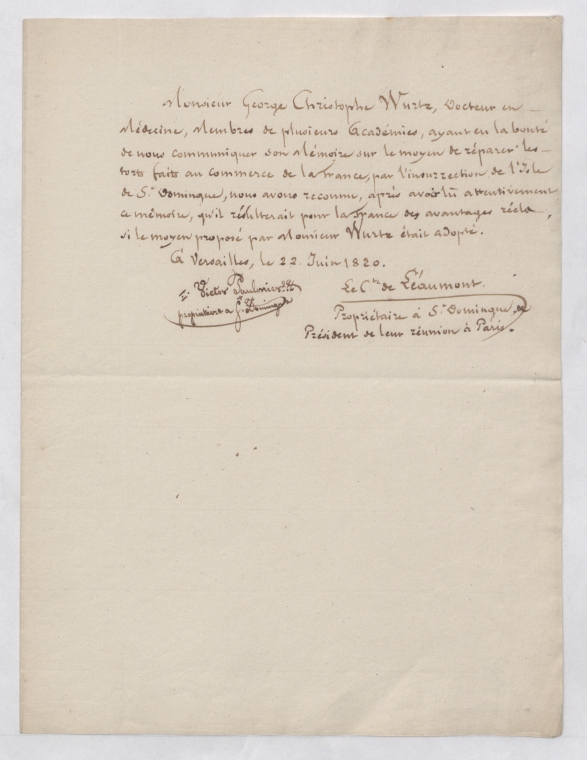 Monsieur George Christophe Wurtz, Docteur en
Médecine, Membres de plusieurs Académies, ayant eu la bonté
de nous communiquer son Mémoire sur le moyen de réparer les
torts faits au commerce de la france, par l'insurrection de l'Isle
de St. Domingue, nous avons reconnu, après avoir lû attentivement
ce mémoire, qu'il résulterait pour la france des avantages réels,
si le moyen proposé par Monsieur Wurtz était adopté.
à Versailles, le 22 Juin 1820.
Victor
propriétaire a St. Domingue
Le Cte. de Léaumont.
Propriétaire à St. Domingue, et
Président de leur réunion à Paris.